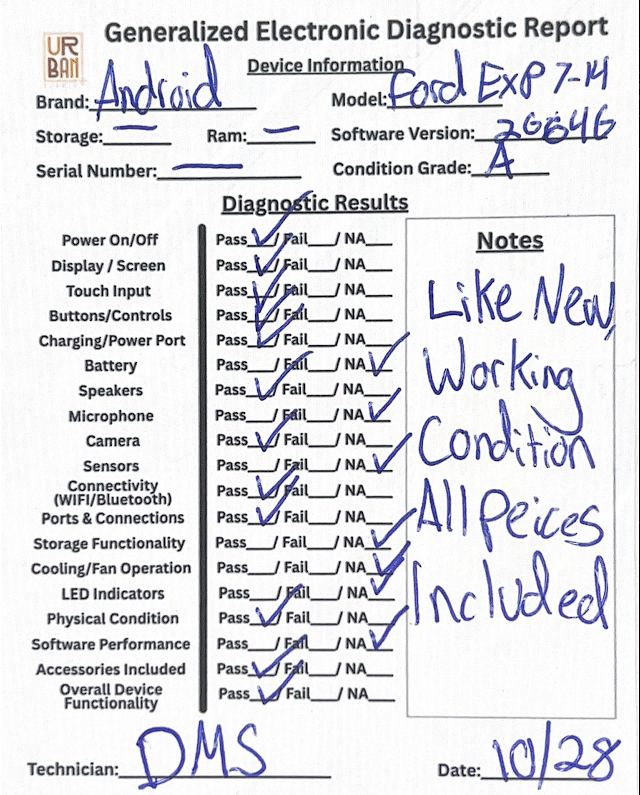 UR
BAN
Generalized Electronic Diagnostic Report
Device Information
Brand: Android Model: Ford Exp 7-14
Storage: — Ram: — Software Version: 2G64G
Serial Number: — Condition Grade: A
Diagnostic Results
Notes
Power On/Off Pass ✓ / Fail___/ NA___
Display / Screen Pass ✓ / Fail___/ NA___
Touch Input Pass ✓ / Fail___/ NA___
Buttons/Controls Pass ✓ / Fail___/ NA___
Charging/Power Port Pass ✓ / Fail___/ NA___
Battery Pass___/ Fail___/ NA ✓
Speakers Pass ✓ / Fail___/ NA___
Microphone Pass___/ Fail___/ NA ✓
Camera Pass ✓ / Fail___/ NA___
Sensors Pass___/ Fail___/ NA ✓
Connectivity
(WIFI/Bluetooth) Pass ✓ / Fail___/ NA___
Ports & Connections Pass ✓ / Fail___/ NA___
Storage Functionality Pass___/ Fail___/ NA ✓
Cooling/Fan Operation Pass___/ Fail___/ NA ✓
LED Indicators Pass___/ Fail___/ NA ✓
Physical Condition Pass ✓ / Fail___/ NA___
Software Performance Pass___/ Fail___/ NA ✓
Accessories Included Pass ✓ / Fail___/ NA___
Overall Device
Functionality Pass ✓ / Fail___/ NA___
Like New,
Working
Condition
All Peices
Included
Technician: DMS Date: 10/28